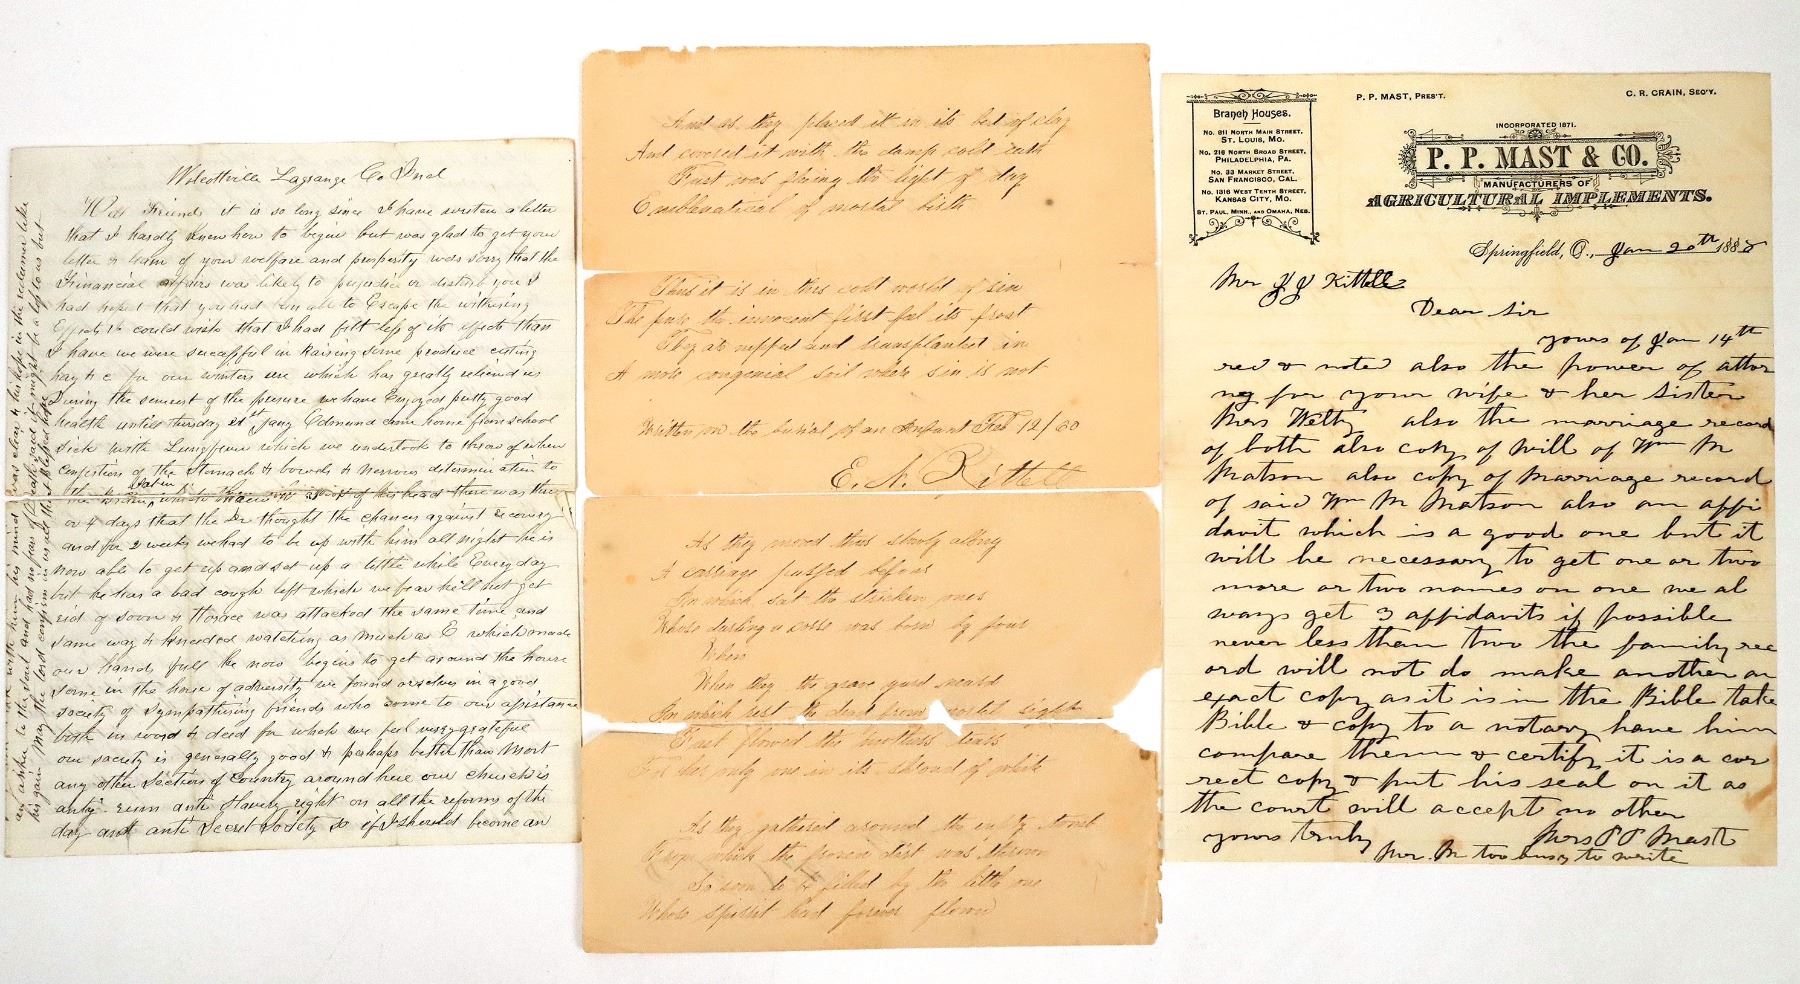 Wolcottville Lagrange Co Ind
Well Friends it is so long since I have written a letter
that I hardly knew how to begin but was glad to get your
letter & learn of your welfare and prosperity was sorry that the
Financial affairs was likely to prejudice or disturb you I
had hoped that you had been able to Escape the withering
Effects & could wish that I had felt less of its effects than
I have we were successful in Raising some produce cutting
hay & c for our winters use which has greatly relieved us
During the severest of the pressure we have Enjoyed pretty good
health untill thursday 21st Jany Edmund came home from school
sick with Lungfever which we undertook to throw of when
congestion of the Stomach & bowels & nervous determination to
the Brain set in which of his head there was three
or 4 days that the Dr thought the chances against recovery
and for 2 weeks we had to be up with him all night he is
now able to get up and set up a little while Every day
but he has a bad cough left which we fear he'll not get
rid of soon & Horace was attacked the same time and
same way & needed watching as much as E which made
our hands full he now begins to get around the house
some in the hour of adversity we found ourselves in a good
society of Sympathising friends who come to our assistance
both in word & deed for which we feel very grateful
our society is generally good & perhaps better than most
any other section of Country around here our church is
anti rum anti Slavery right on all the reforms of the
day and anti Secret Society so if I should become an
his mind was clear & his hope in the redeemer like
an anchor to the soul and had no fears of Death said it might be a loss to us but
his gain May the lord confirm in us all that blessed hope
And as they placed it in its bed of clay
And covered it with the damp cold earth
Fast was fleing the light of day
Emblematical of mortal birth
Thus it is in this cold world of sin
The pure the innocent first feel its frost
They are nipped and transplanted in
A more congenial soil where sin is not
Written on the burial of an Infant Feb 12/60
E. N. Kittell
As they moved thus slowly along
A carriage passed before
In which sat the stricken ones
Whose darling a corse was born by four
When
When they the grave yard neard
In which rest the dead from mortal sight
Fast flowed the mothers tears
For her only one in its shroud of white
As they gathered around the empty tomb
From which the frozen dirt was thrown
So soon to be filled by the little one
Whose spirit had forever flown
Branch Houses.
No. 811 North Main Street,
St. Louis, Mo.
No. 216 North Broad Street,
Philadelphia, Pa.
No. 33 Market Street,
San Francisco, Cal.
No. 1316 West Tenth Street,
Kansas City, Mo.
St. Paul, Minn., and Omaha, Neb.
P. P. MAST, Pres't.
C. R. CRAIN, Sec'y.
INCORPORATED 1871.
P. P. MAST & CO.
MANUFACTURERS OF
AGRICULTURAL IMPLEMENTS.
Springfield, O., Jan 20th 1888
Mr J J Kittell
Dear Sir
yours of Jan 14th
recd & noted also the power of attor
ney for your wife & her Sister
Mrs Welty also the marriage record
of both also copy of will of Wm M
Matson also copy of marriage record
of said Wm M Matson also an affi
davit which is a good one but it
will be necessary to get one or two
more or two names on one we al
ways get 3 affidavits if possible
never less than two the family rec
ord will not do make another an
exact copy as it is in the Bible take
Bible & copy to a notary have him
compare them & certify it is a cor
rect copy & put his seal on it as
the court will accept no other
yours truly Mrs P P Mast
Mr. M too busy to write